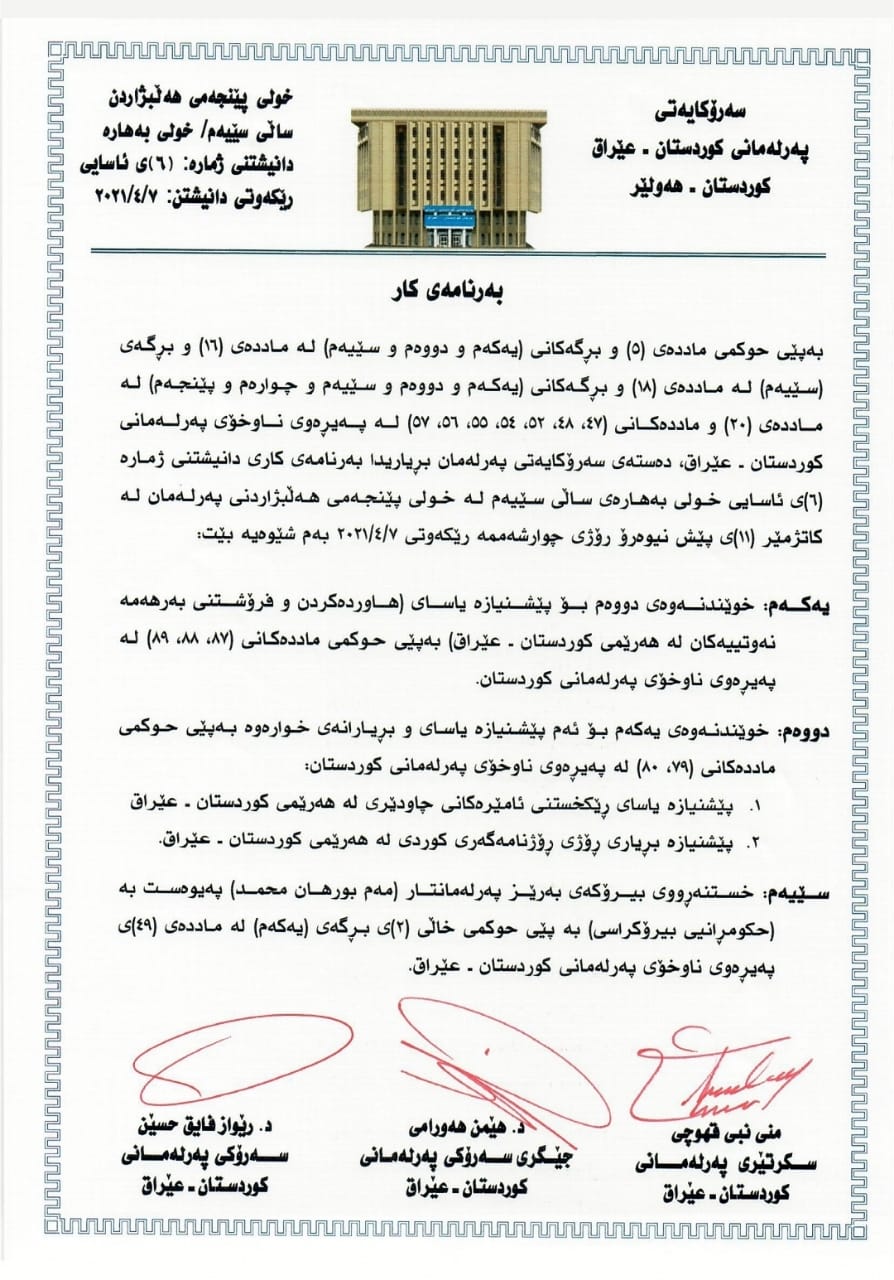 سەرۆکایەتی
پەرلەمانی کوردستان ـ عێراق
کوردستان ـ هەولێر
خولی پێنجەمی هەڵبژاردن
ساڵی سێیەم/ خولی بەهارە
دانیشتنی ژمارە: (٦)ی ئاسایی
رێکەوتی دانیشتن: ٢٠٢١/٤/٧
بەرنامەی کار
بەپێی حوکمی ماددەی (٥) و برگەکانی (یەکەم و دووەم و سێیەم) لە ماددەی (١٦) و برگەی
(سێیەم) لە ماددەی (١٨) و برگەکانی (یەکەم و دووەم و سێیەم و چوارەم و پێنجەم) لە
ماددەی (٢٠) و ماددەکانی (٤٧، ٤٨، ٥٢، ٥٤، ٥٥، ٥٦، ٥٧) لە پەیرەوی ناوخۆی پەرلەمانی
کوردستان ـ عێراق، دەستەی سەرۆکایەتی پەرلەمان بریاریدا بەرنامەی کاری دانیشتنی ژمارە
(٦)ی ئاسایی خولی بەهارەی ساڵی سێیەم لە خولی پێنجەمی هەڵبژاردنی پەرلەمان لە
کاتژمێر (١١)ی پێش نیوەرۆ رۆژی چوارشەممە رێکەوتی ٢٠٢١/٤/٧ بەم شێوەیە بێت:
یەکەم: خوێندنەوەی دووەم بۆ پێشنیازە یاسای (هاوردەکردن و فرۆشتنی بەرهەمە
نەوتییەکان لە هەرێمی کوردستان ـ عێراق) بەپێی حوکمی ماددەکانی (٨٧، ٨٨، ٨٩) لە
پەیرەوی ناوخۆی پەرلەمانی کوردستان.
دووەم: خوێندنەوەی یەکەم بۆ ئەم پێشنیازە یاسای و بریارانەی خوارەوە بەپێی حوکمی
ماددەکانی (٧٩، ٨٠) لە پەیرەوی ناوخۆی پەرلەمانی کوردستان:
١. پێشنیازە یاسای ڕێکخستنی ئامێرەکانی چاودێری لە هەرێمی کوردستان ـ عێراق
٢. پێشنیازە بریاری ڕۆژی ڕۆژنامەگەری کوردی لە هەرێمی کوردستان ـ عێراق.
سێیەم: خستنەڕووی بیرۆکەی بەرێز پەرلەمانتار (مەم بورهان محمد) پەیوەست بە
(حکومڕانیی بیرۆکراسی) بە پێی حوکمی خاڵی (٢)ی برگەی (یەکەم) لە ماددەی (٤٩)ی
پەیرەوی ناوخۆی پەرلەمانی کوردستان ـ عێراق.
منى نبی قهوچی
سکرتێری پەرلەمانی
کوردستان ـ عێراق
د. هێمن هەورامی
جێگری سەرۆکی پەرلەمانی
کوردستان ـ عێراق
د. رێواز فایق حسێن
سەرۆکی پەرلەمانی
کوردستان ـ عێراق